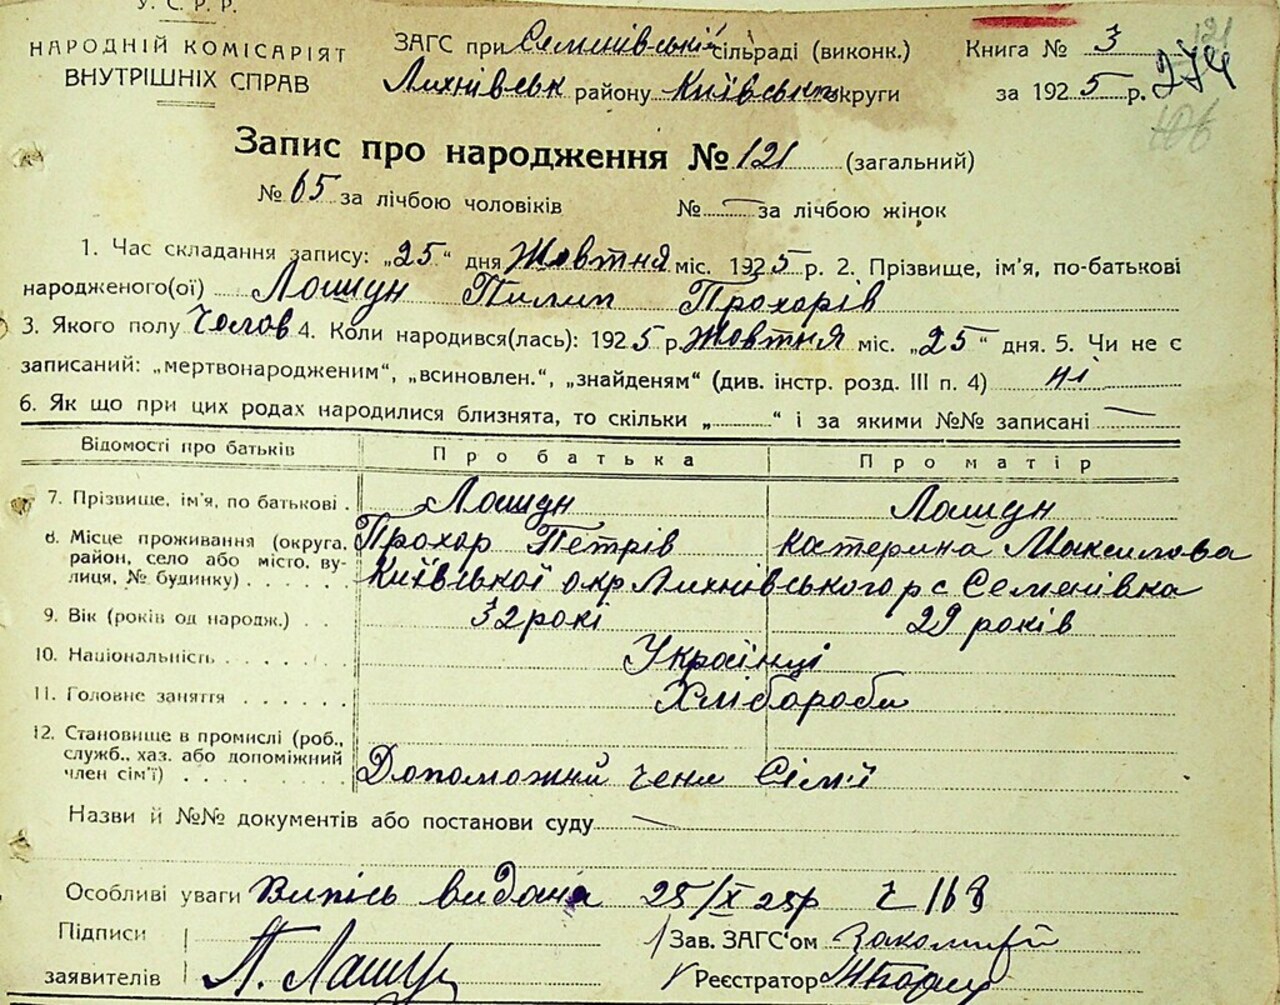 У. С. Р. Р.
НАРОДНІЙ КОМІСАРІЯТ
ВНУТРІШНІХ СПРАВ
ЗАГС при Семенівській сільраді (виконк.)
Лихнівськ району Київськ округи
Книга № 3
за 1925 р.
274
121
106
Запис про народження № 121 (загальний)
№ 65 за лічбою чоловіків № — за лічбою жінок
1. Час складання запису: „25“ дня Жовтня міс. 1925 р. 2. Прізвище, ім'я, по-батькові
народженого(ої) Лошун Пилип Прохорів
3. Якого полу Чолов 4. Коли народився(лась): 1925 р. Жовтня міс. „25“ дня. 5. Чи не є
записаний: „мертвонародженим“, „всиновлен.“, „знайденям“ (див. інстр. розд. III п. 4) ні
6. Як що при цих родах народилися близнята, то скільки „ “ і за якими №№ записані —
Відомості про батьків Про батька Про матір
7. Прізвище, ім'я, по батькові . Лошун Лошун
Прохор Петрів Катерина Максимова
8. Місце проживання (округа, район, село або місто, вулиця, № будинку) Київської окр Лихнівського р с Семенівка
9. Вік (років од народж.) 32 рокі 29 років
10. Національність Українці
11. Головне заняття Хлібороби
12. Становище в промислі (роб., служб., хаз. або допоміжний член сім'ї) Допоможний члени Сім'ї
Назви й №№ документів або постанови суду —
Особливі уваги Випись видана 25/X 25р № 168
Підписи
заявителів П. Лошун
Зав. ЗАГС'ом
Реєстратор